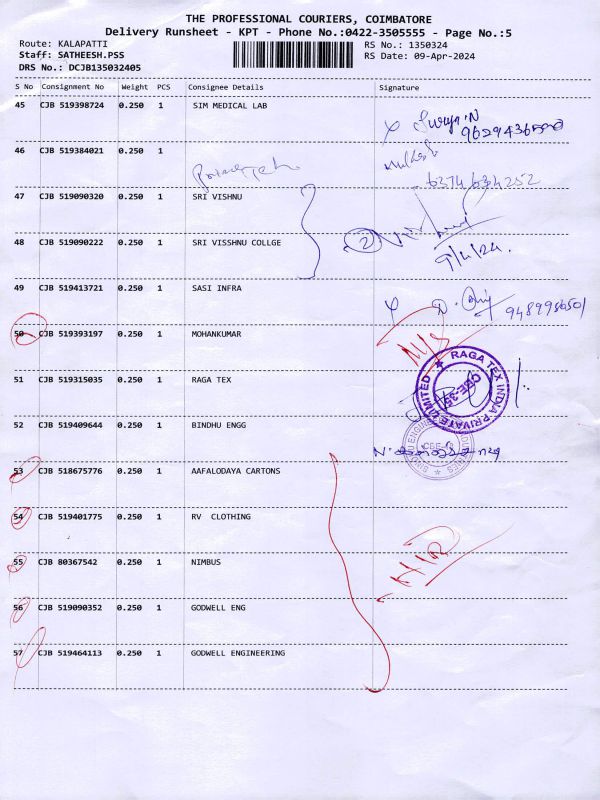 THE PROFESSIONAL COURIERS, COIMBATORE
Delivery Runsheet - KPT - Phone No.:0422-3505555 - Page No.:5
Route: KALAPATTI
RS No.: 1350324
Staff: SATHEESH.PSS
RS Date: 09-Apr-2024
DRS No.: DCJB135032405
S No Consignment No Weight PCS Consignee Details Signature
45 CJB 519398724 0.250 1 SIM MEDICAL LAB
Surya.N
46 CJB 519384021 0.250 1
6374634252
47 CJB 519090320 0.250 1 SRI VISHNU
48 CJB 519090222 0.250 1 SRI VISSHNU COLLGE
2
9/4/24.
49 CJB 519413721 0.250 1 SASI INFRA
9489986501
50 CJB 519393197 0.250 1 MOHANKUMAR
N/S
51 CJB 519315035 0.250 1 RAGA TEX
RAGA TEX INDIA PRIVATE LIMITED
CBE-35
52 CJB 519409644 0.250 1 BINDHU ENGG
53 CJB 518675776 0.250 1 AAFALODAYA CARTONS
54 CJB 519401775 0.250 1 RV CLOTHING
55 CJB 80367542 0.250 1 NIMBUS
56 CJB 519090352 0.250 1 GODWELL ENG
57 CJB 519464113 0.250 1 GODWELL ENGINEERING